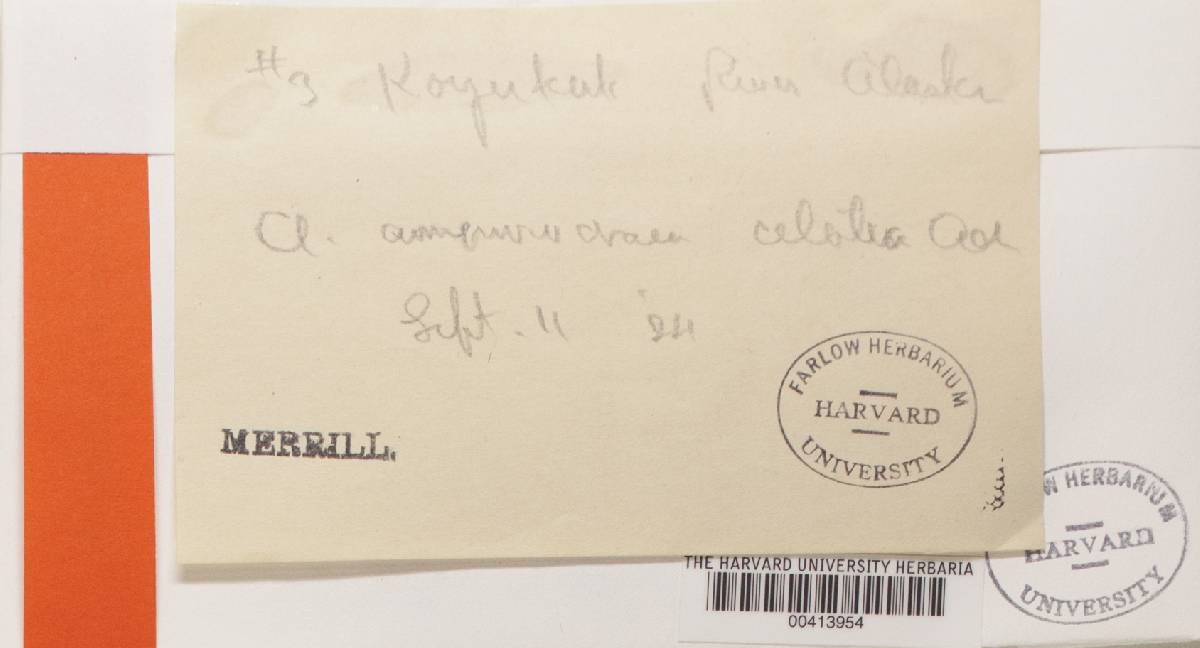 #3 Koyukuk River Alaska
Cl. Ach
Sept. 11 '24
MERRILL.
FARLOW HERBARIUM
HARVARD
UNIVERSITY
W HERBARIUM
HARVARD
UNIVERSITY
THE HARVARD UNIVERSITY HERBARIA
00413954